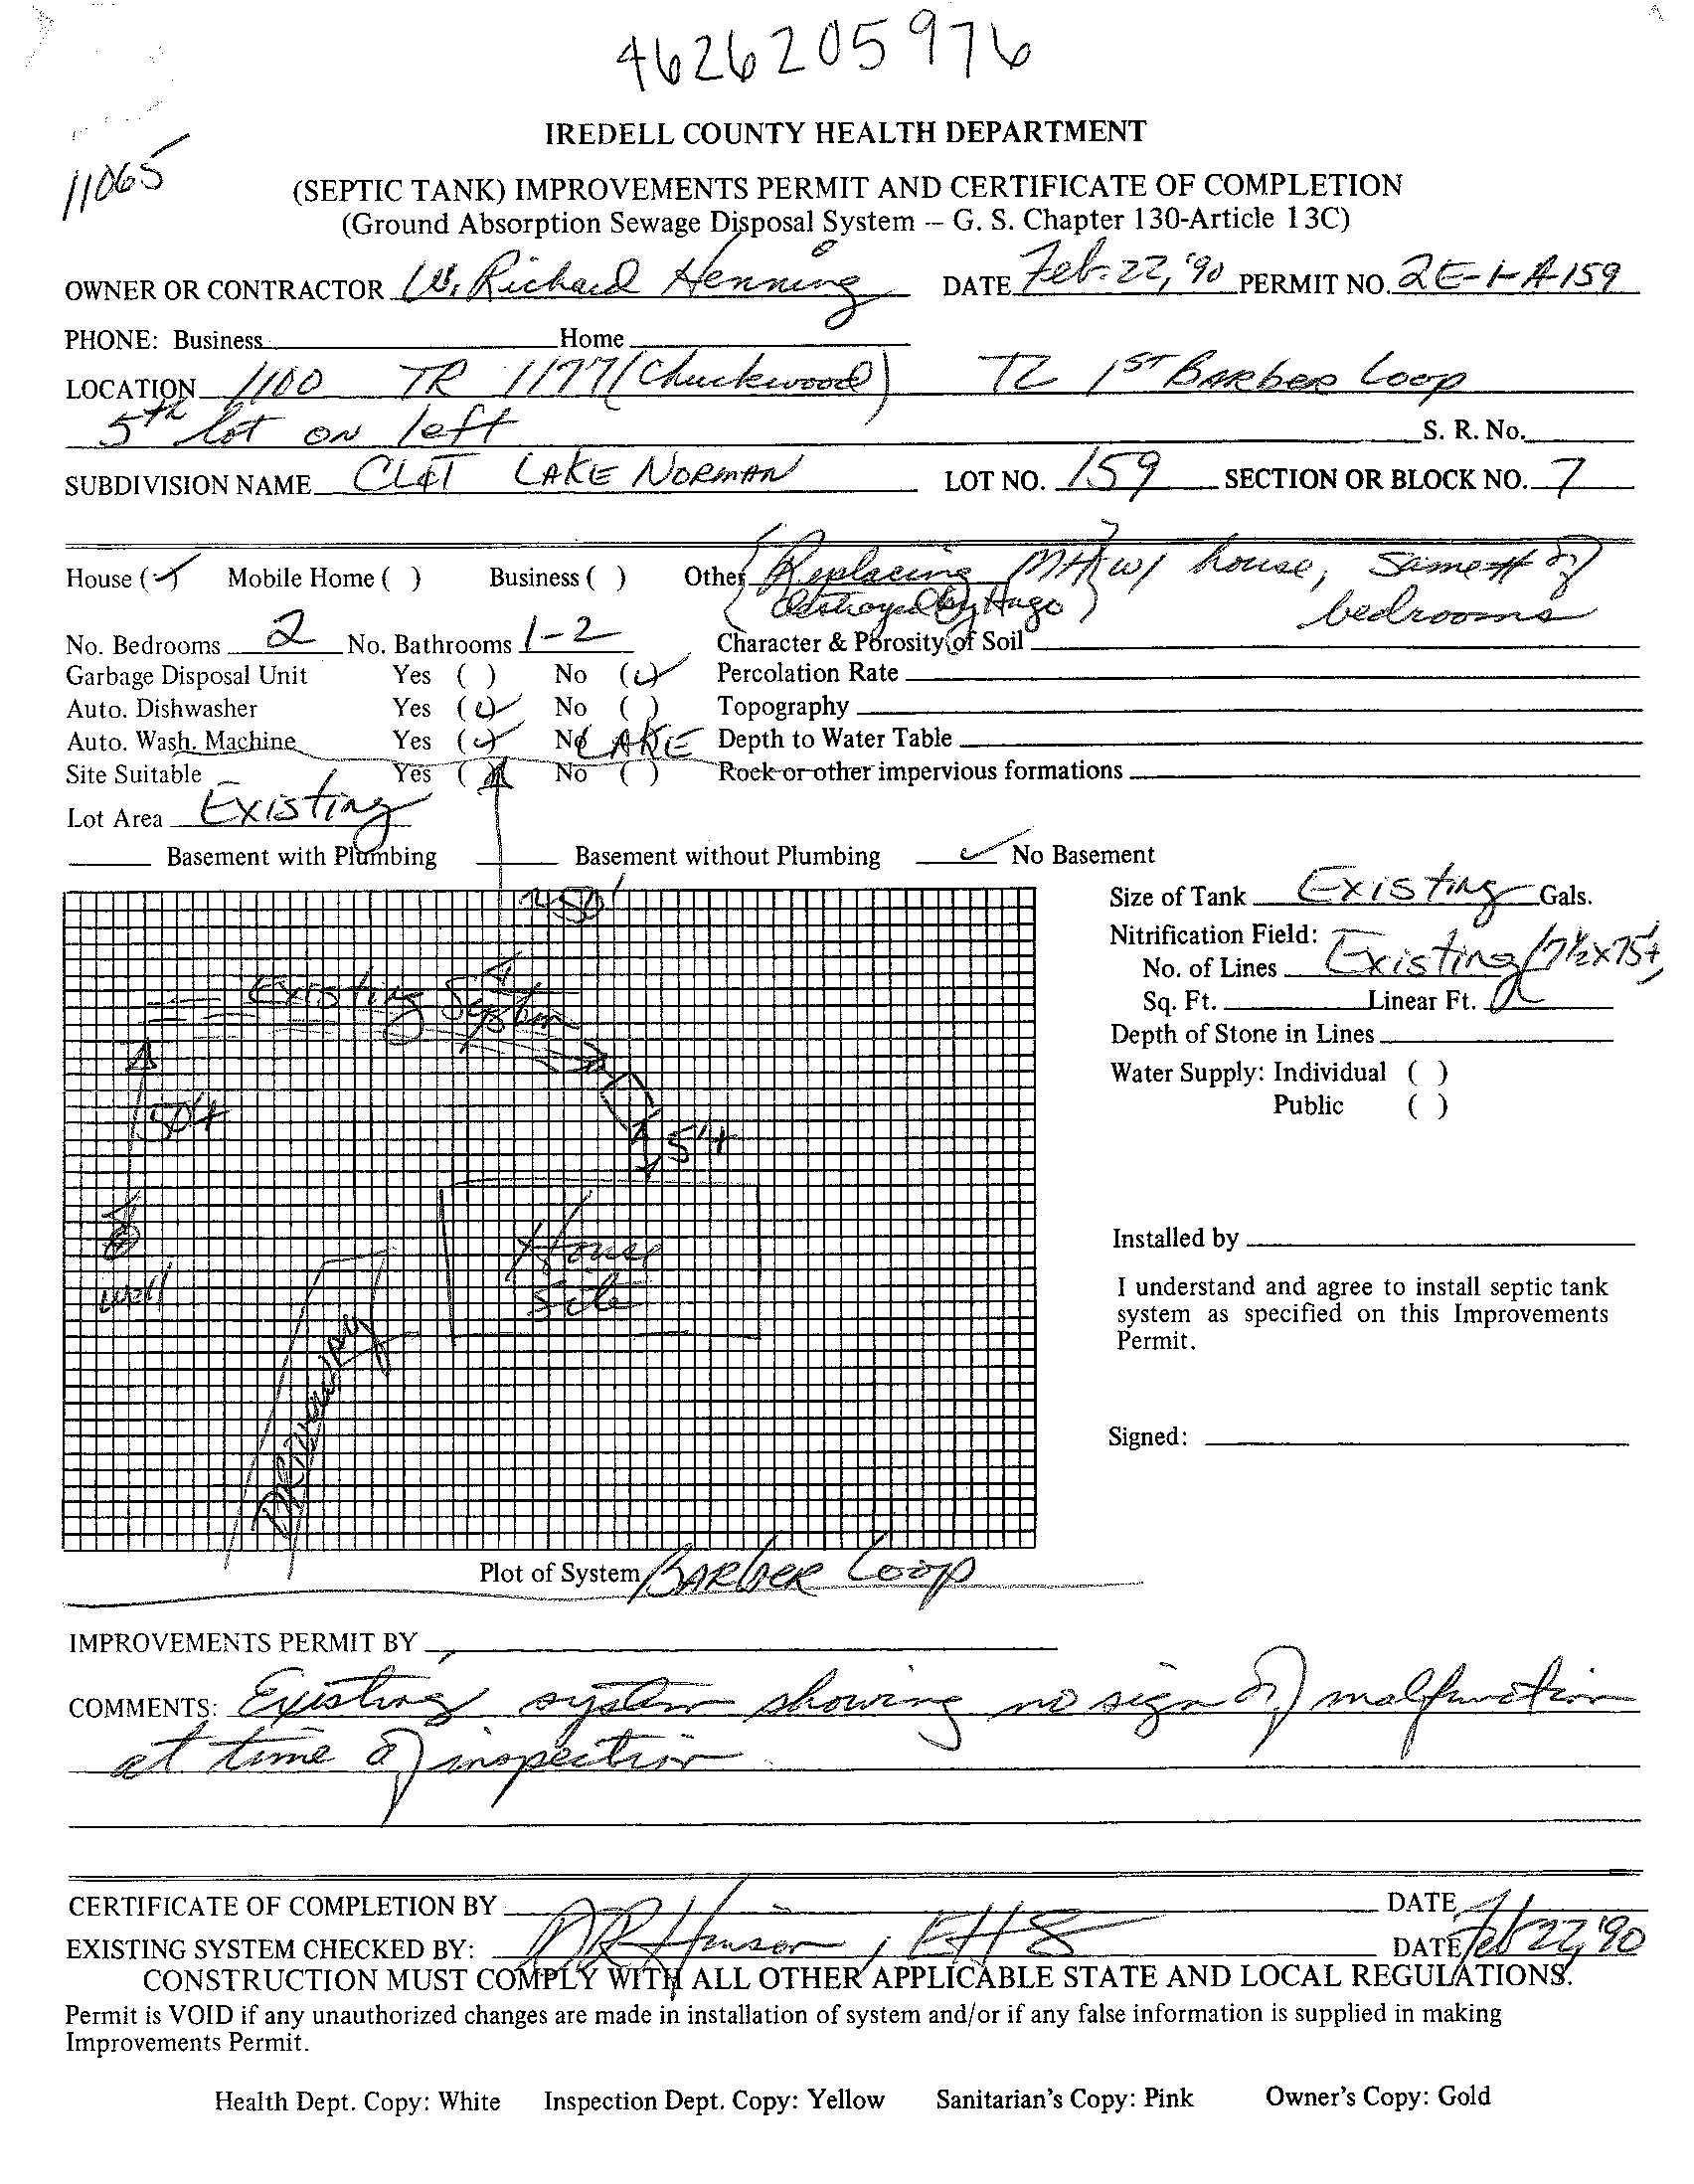 4626205976
IREDELL COUNTY HEALTH DEPARTMENT
11065
(SEPTIC TANK) IMPROVEMENTS PERMIT AND CERTIFICATE OF COMPLETION
(Ground Absorption Sewage Disposal System -- G. S. Chapter 130-Article 13C)
OWNER OR CONTRACTOR W. Richard Henning DATE Feb. 22, '90 PERMIT NO. 2E-1-A-159
PHONE: Business Home
LOCATION 1100 TR 1177 (Chuckwood) TL 1ST BARBER Loop
5th lot on left S. R. No.
SUBDIVISION NAME CL&T LAKE NORMAN LOT NO. 159 SECTION OR BLOCK NO. 7
House (✓) Mobile Home ( ) Business ( ) Other {Replacing MH} w/ house, same # of
{destroyed by Hugo} bedrooms
No. Bedrooms 2 No. Bathrooms 1-2 Character & Porosity of Soil
Garbage Disposal Unit Yes ( ) No (✓) Percolation Rate
Auto. Dishwasher Yes (✓) No ( ) Topography
Auto. Wash. Machine Yes (✓) No LAKE Depth to Water Table
Site Suitable Yes ( ) No ( ) Rock or other impervious formations
Lot Area Existing
Basement with Plumbing Basement without Plumbing ✓ No Basement
Size of Tank Existing Gals.
Nitrification Field:
No. of Lines Existing 7½x75±
Sq. Ft. Linear Ft.
Depth of Stone in Lines
Water Supply: Individual ( )
Public ( )
Existing System
50'±
5'±
well
House
Site
DRiveway
Installed by
I understand and agree to install septic tank
system as specified on this Improvements
Permit.
Signed:
Plot of System BARBER Loop
IMPROVEMENTS PERMIT BY
COMMENTS: Existing system showing no sign of malfunction
at time of inspection.
CERTIFICATE OF COMPLETION BY DATE
EXISTING SYSTEM CHECKED BY: DR Hinson, EHS DATE Feb 22, '90
CONSTRUCTION MUST COMPLY WITH ALL OTHER APPLICABLE STATE AND LOCAL REGULATIONS.
Permit is VOID if any unauthorized changes are made in installation of system and/or if any false information is supplied in making
Improvements Permit.
Health Dept. Copy: White Inspection Dept. Copy: Yellow Sanitarian's Copy: Pink Owner's Copy: Gold